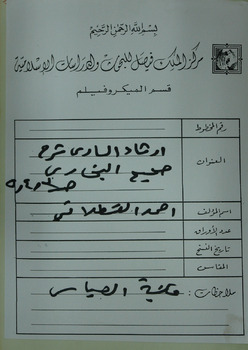 بسم الله الرحمن الرحيم
مركز الملك فيصل للبحوث والدراسات الإسلامية
قسم الميكروفيلم
رقم المخطوط
العنوان ارشاد السارى شرح
صحيح البخارى
اسم المؤلف احمد القسطلانى
عدد الأوراق
تاريخ النسخ
المقاس
ملاحظات :